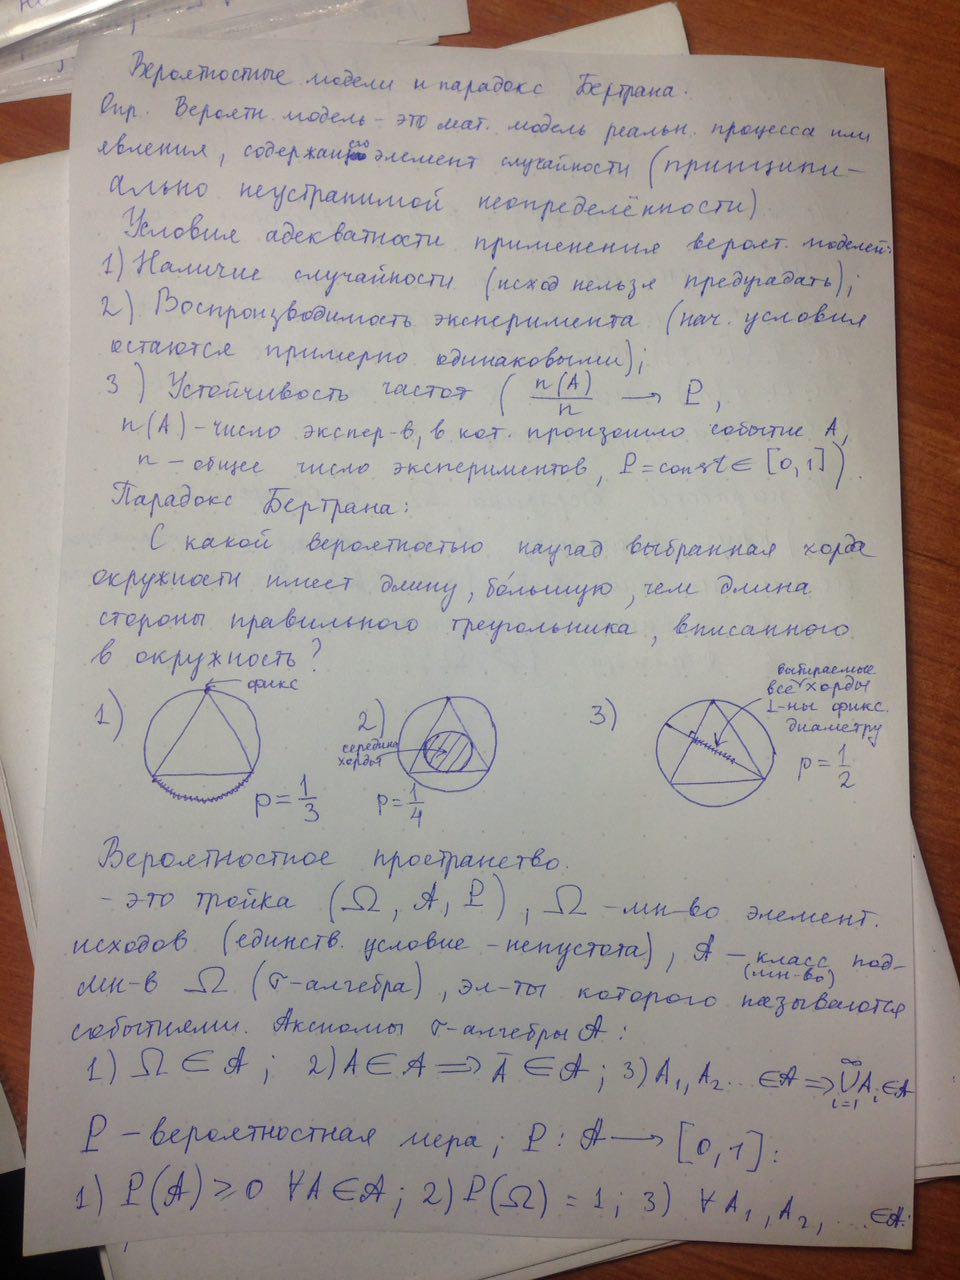 Вероятностные модели и парадокс Бертрана.
Опр. Вероятн. модель – это мат. модель реальн. процесса или
явления, содержащего элемент случайности (принципи-
ально неустранимой неопределённости)
Условия адекватности применения вероят. моделей:
1) Наличие случайности (исход нельзя предугадать);
2) Воспроизводимость эксперимента (нач. условия
остаются примерно одинаковыми);
3) Устойчивость частот ( n(A)/n → P,
n(A) – число экспер-в, в кот. произошло событие A,
n – общее число экспериментов, P = const ∈ [0,1])
Парадокс Бертрана:
С какой вероятностью наугад выбранная хорда
окружности имеет длину, бо́льшую, чем длина
стороны правильного треугольника, вписанного
в окружность?
1) фикс
p = 1/3
2) середина
хорды
p = 1/4
3) выбираемые
все хорды
⊥-ны фикс.
диаметру
p = 1/2
Вероятностное пространство.
– это тройка (Ω, 𝒜, P), Ω – мн-во элемент.
исходов (единств. условие – непустота), 𝒜 – класс под-
(мн-во)
мн-в Ω (σ-алгебра), эл-ты которого называются
событиями. Аксиомы σ-алгебры 𝒜:
1) Ω ∈ 𝒜; 2) A ∈ 𝒜 ⇒ Ā ∈ 𝒜; 3) A₁, A₂ ... ∈ 𝒜 ⇒ ∞⋃i=1 Aᵢ ∈ 𝒜
P – вероятностная мера; P: 𝒜 → [0,1]:
1) P(A) ⩾ 0 ∀A ∈ 𝒜; 2) P(Ω) = 1; 3) ∀ A₁, A₂, ... ∈ 𝒜: